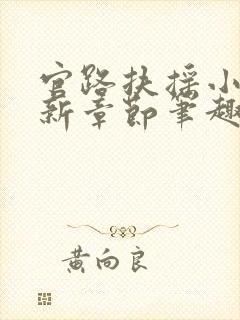 官路扶摇小
新章节笔趣
黄向良